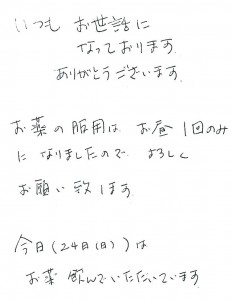 いつも お世話に
なっております
ありがとうございます
お薬の服用は お昼1回のみ
になりましたので よろしく
お願い致します
今日(24日(日))は
お薬 飲んでいただいています